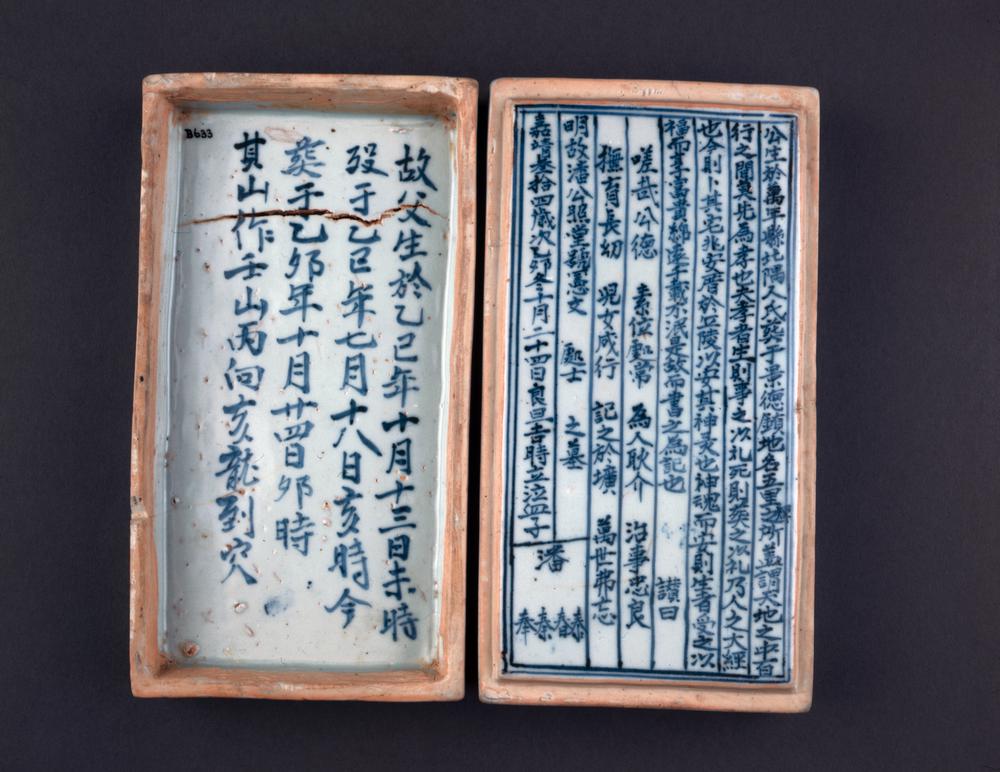 公生於萬年縣北隅人氏葬于景德鎮地名五里之所蓋謂天地之中百
行之間莫此為孝也夫孝者生則事之以礼死則葬之以礼乃人之大經
也今則卜其宅兆安厝於丘陵以安其神灵也神魂而安則生者受之以
福而享富貴綿遠千載不泯是故而書之為記也 讃曰
嗟哉公德 素位處常 為人耿介 治事忠良
撫育長幼 児女成行 記之於壙 萬世弗忘
明故潘公照堂號憲文 處士 之墓
嘉靖叁拾四歲次乙夘冬十月二十四日良旦吉時立泣血子 潘 泰春秦奉
故父生於乙巳年十月十三日未時
歿于乙巳年七月十八日亥時今
葬于乙夘年十月廿四日夘時
其山作壬山丙向亥龍到穴
B633